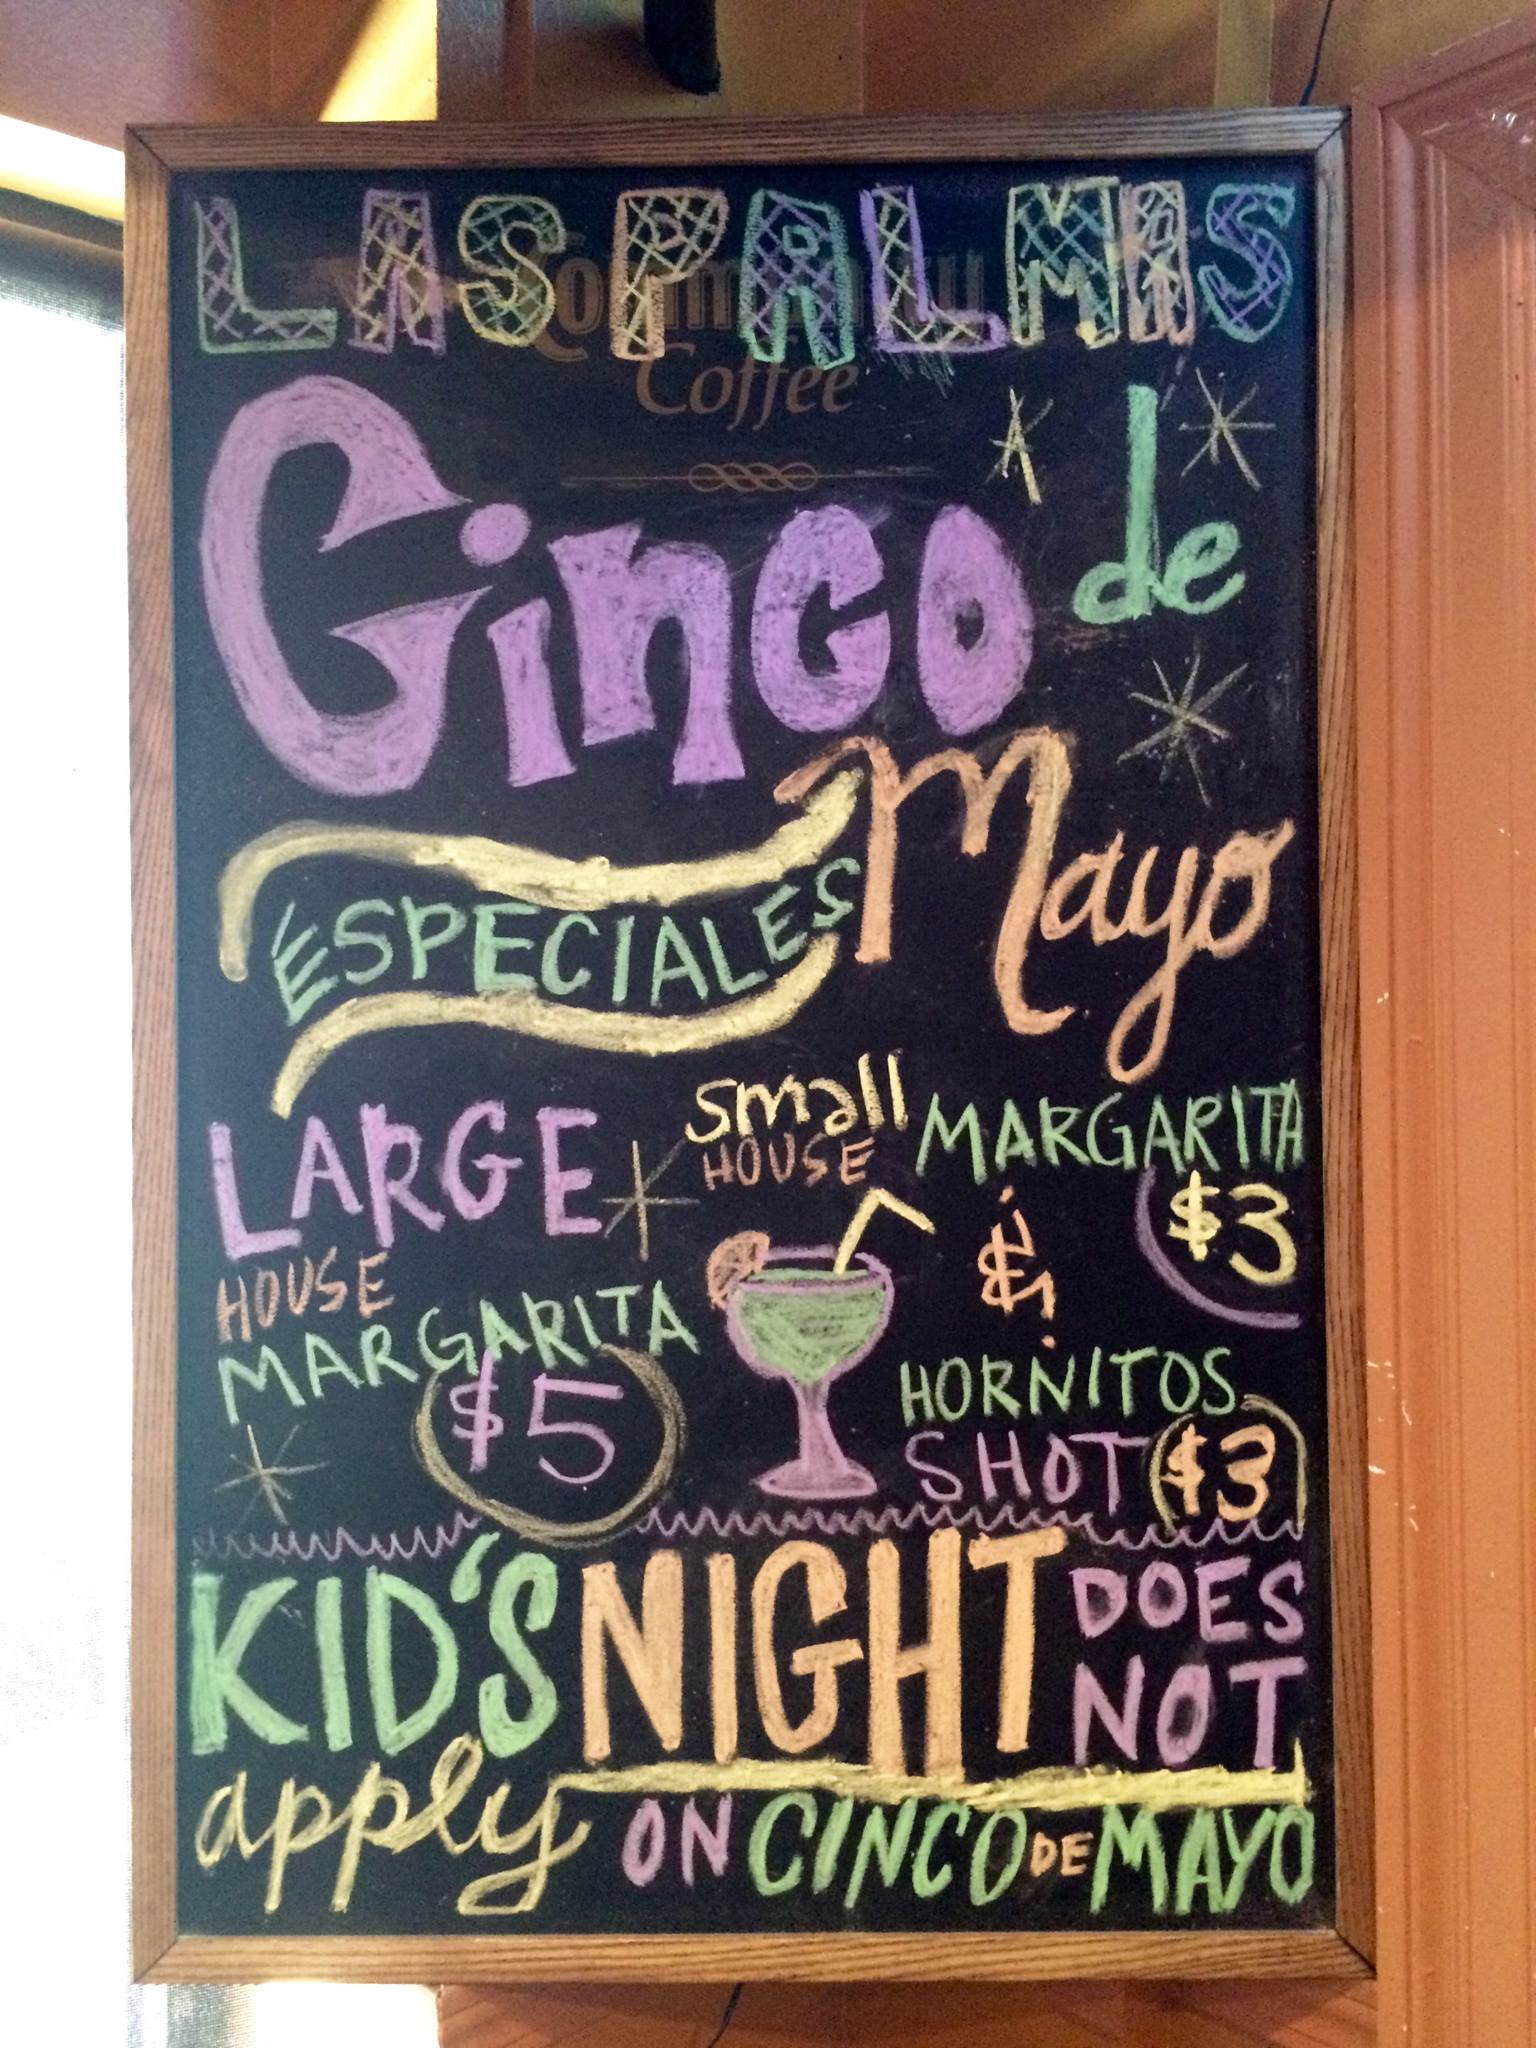 LAS PALMAS
Community
Coffee
Cinco de
Mayo
ESPECIALES
LARGE
HOUSE
MARGARITA
$5
small
HOUSE MARGARITA
$3
&
HORNITOS
SHOT $3
KID'S NIGHT DOES
NOT
apply ON CINCO DE MAYO